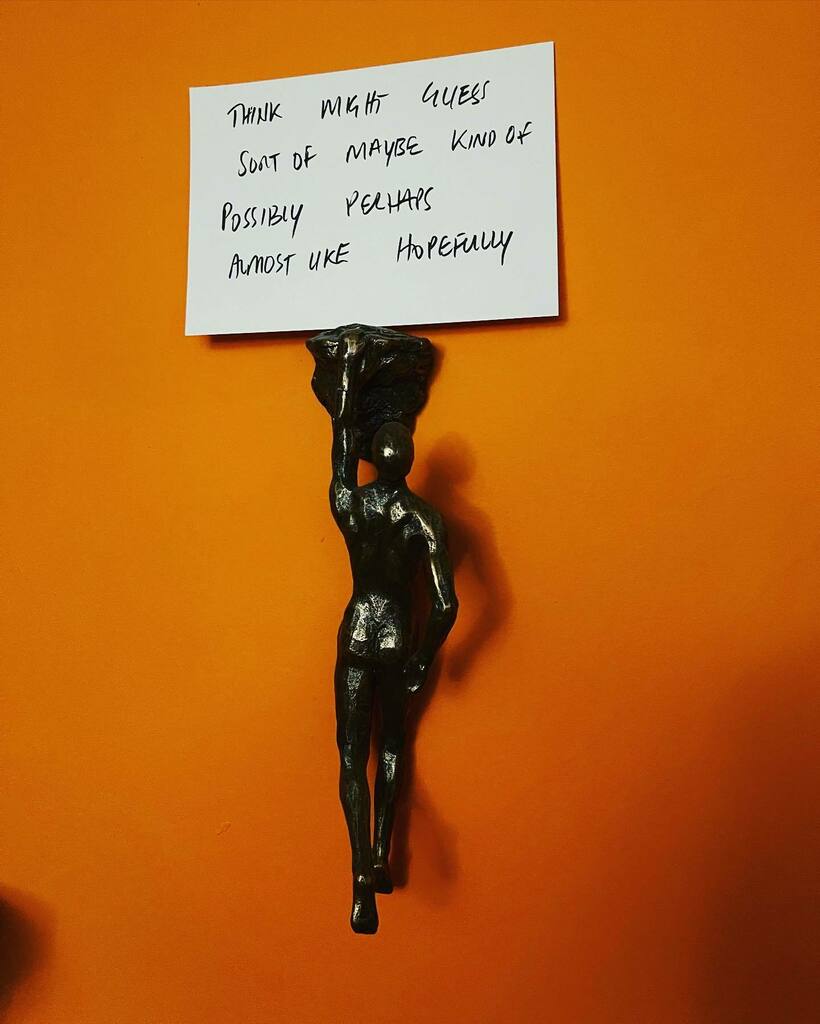 THINK MIGHT GUESS
SORT OF MAYBE KIND OF
POSSIBLY PERHAPS
ALMOST LIKE HOPEFULLY